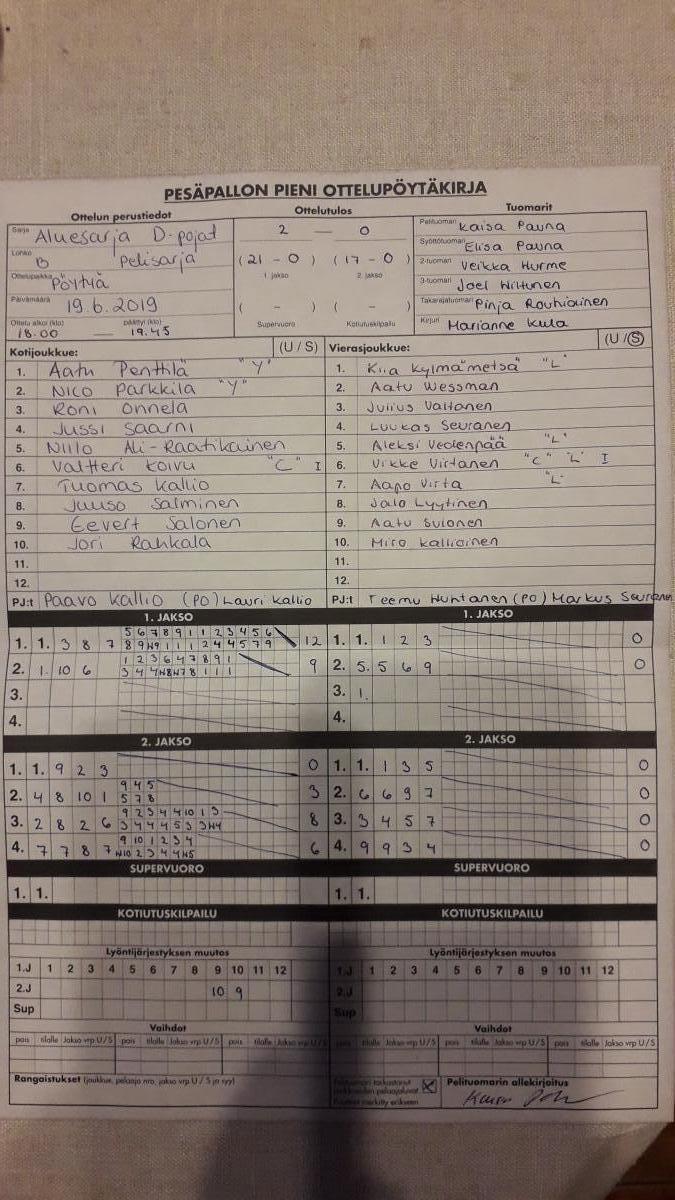 PESÄPALLON PIENI OTTELUPÖYTÄKIRJA
Ottelun perustiedot
Sarja Aluesarja D-pojat
Lohko B Pelisarja
Ottelupaikka Pöytyä
Päivämäärä 19.6.2019
Ottelu alkoi (klo) päättyi (klo)
18.00 — 19.45
Ottelutulos
2 — 0
(21 - 0) (17 - 0)
1. jakso 2. jakso
( - ) ( - )
Supervuoro Kotiutuskilpailu
Tuomarit
Pelituomari Kaisa Pauna
Syöttötuomari Elisa Pauna
2-tuomari Veikka Hurme
3-tuomari Joel Hiltunen
Takarajatuomari Pinja Rouhiainen
Kirjuri Marianne Kula
Kotijoukkue: (U / S)
1. Aatu Penttilä "Y"
2. Nico Parkkila "Y"
3. Roni Onnela
4. Jussi Saarni
5. Niilo Ali-Raatikainen
6. Valtteri Koivu "C" I
7. Tuomas Kallio
8. Juuso Salminen
9. Eevert Salonen
10. Jori Rahkala
11.
12.
PJ:t Paavo Kallio (PO) Lauri Kallio
Vierasjoukkue: (U / S)
1. Kiia Kylmämetsä "L"
2. Aatu Wessman
3. Julius Valtonen
4. Luukas Seuranen
5. Aleksi Vedenpää "L"
6. Vikke Virtanen "C" "L" I
7. Aapo Virta "L"
8. Jalo Lyytinen
9. Aatu Sulonen
10. Miro Kallioinen
11.
12.
PJ:t Teemu Huhtanen (PO) Markus Seuranen
1. JAKSO
5 6 7 8 9 1 1 2 3 4 5 6
1. 1. 3 8 7 12
1 2 3 6 4 7 8 9 1
2. 1. 10 6 9
3.
4.
1. JAKSO
1. 1. 1 2 3 0
2. 5. 5 6 9 0
3. 1.
4.
2. JAKSO
1. 1. 9 2 3 0
9 4 5
2. 4 8 10 1 5 7 8 3
9 2 3 4 4 10 1 3
3. 2 8 2 6 3 4 4 4 5 3 3 N4 8
9 10 1 2 3 4
4. 7 7 8 7 N10 2 3 4 4 N5 6
2. JAKSO
1. 1. 1 3 5 0
2. 6 6 9 7 0
3. 3 4 5 7 0
4. 9 9 3 4 0
SUPERVUORO
1. 1.
SUPERVUORO
1. 1.
KOTIUTUSKILPAILU
KOTIUTUSKILPAILU
Lyöntijärjestyksen muutos
1.J 1 2 3 4 5 6 7 8 9 10 11 12
2.J 10 9
Sup
Lyöntijärjestyksen muutos
1.J 1 2 3 4 5 6 7 8 9 10 11 12
2.J
Sup
Vaihdot
pois tilalle Jakso vrp U / S pois tilalle Jakso vrp U / S pois tilalle Jakso vrp U / S
Vaihdot
pois tilalle Jakso vrp U / S pois tilalle Jakso vrp U / S pois tilalle Jakso vrp U / S
Rangaistukset (joukkue, pelaaja nro, jakso vrp U / S ja syy)
Pelituomari tarkastanut
joukkueiden pelaajaluvat
Puutteet merkitty erikseen
Pelituomarin allekirjoitus